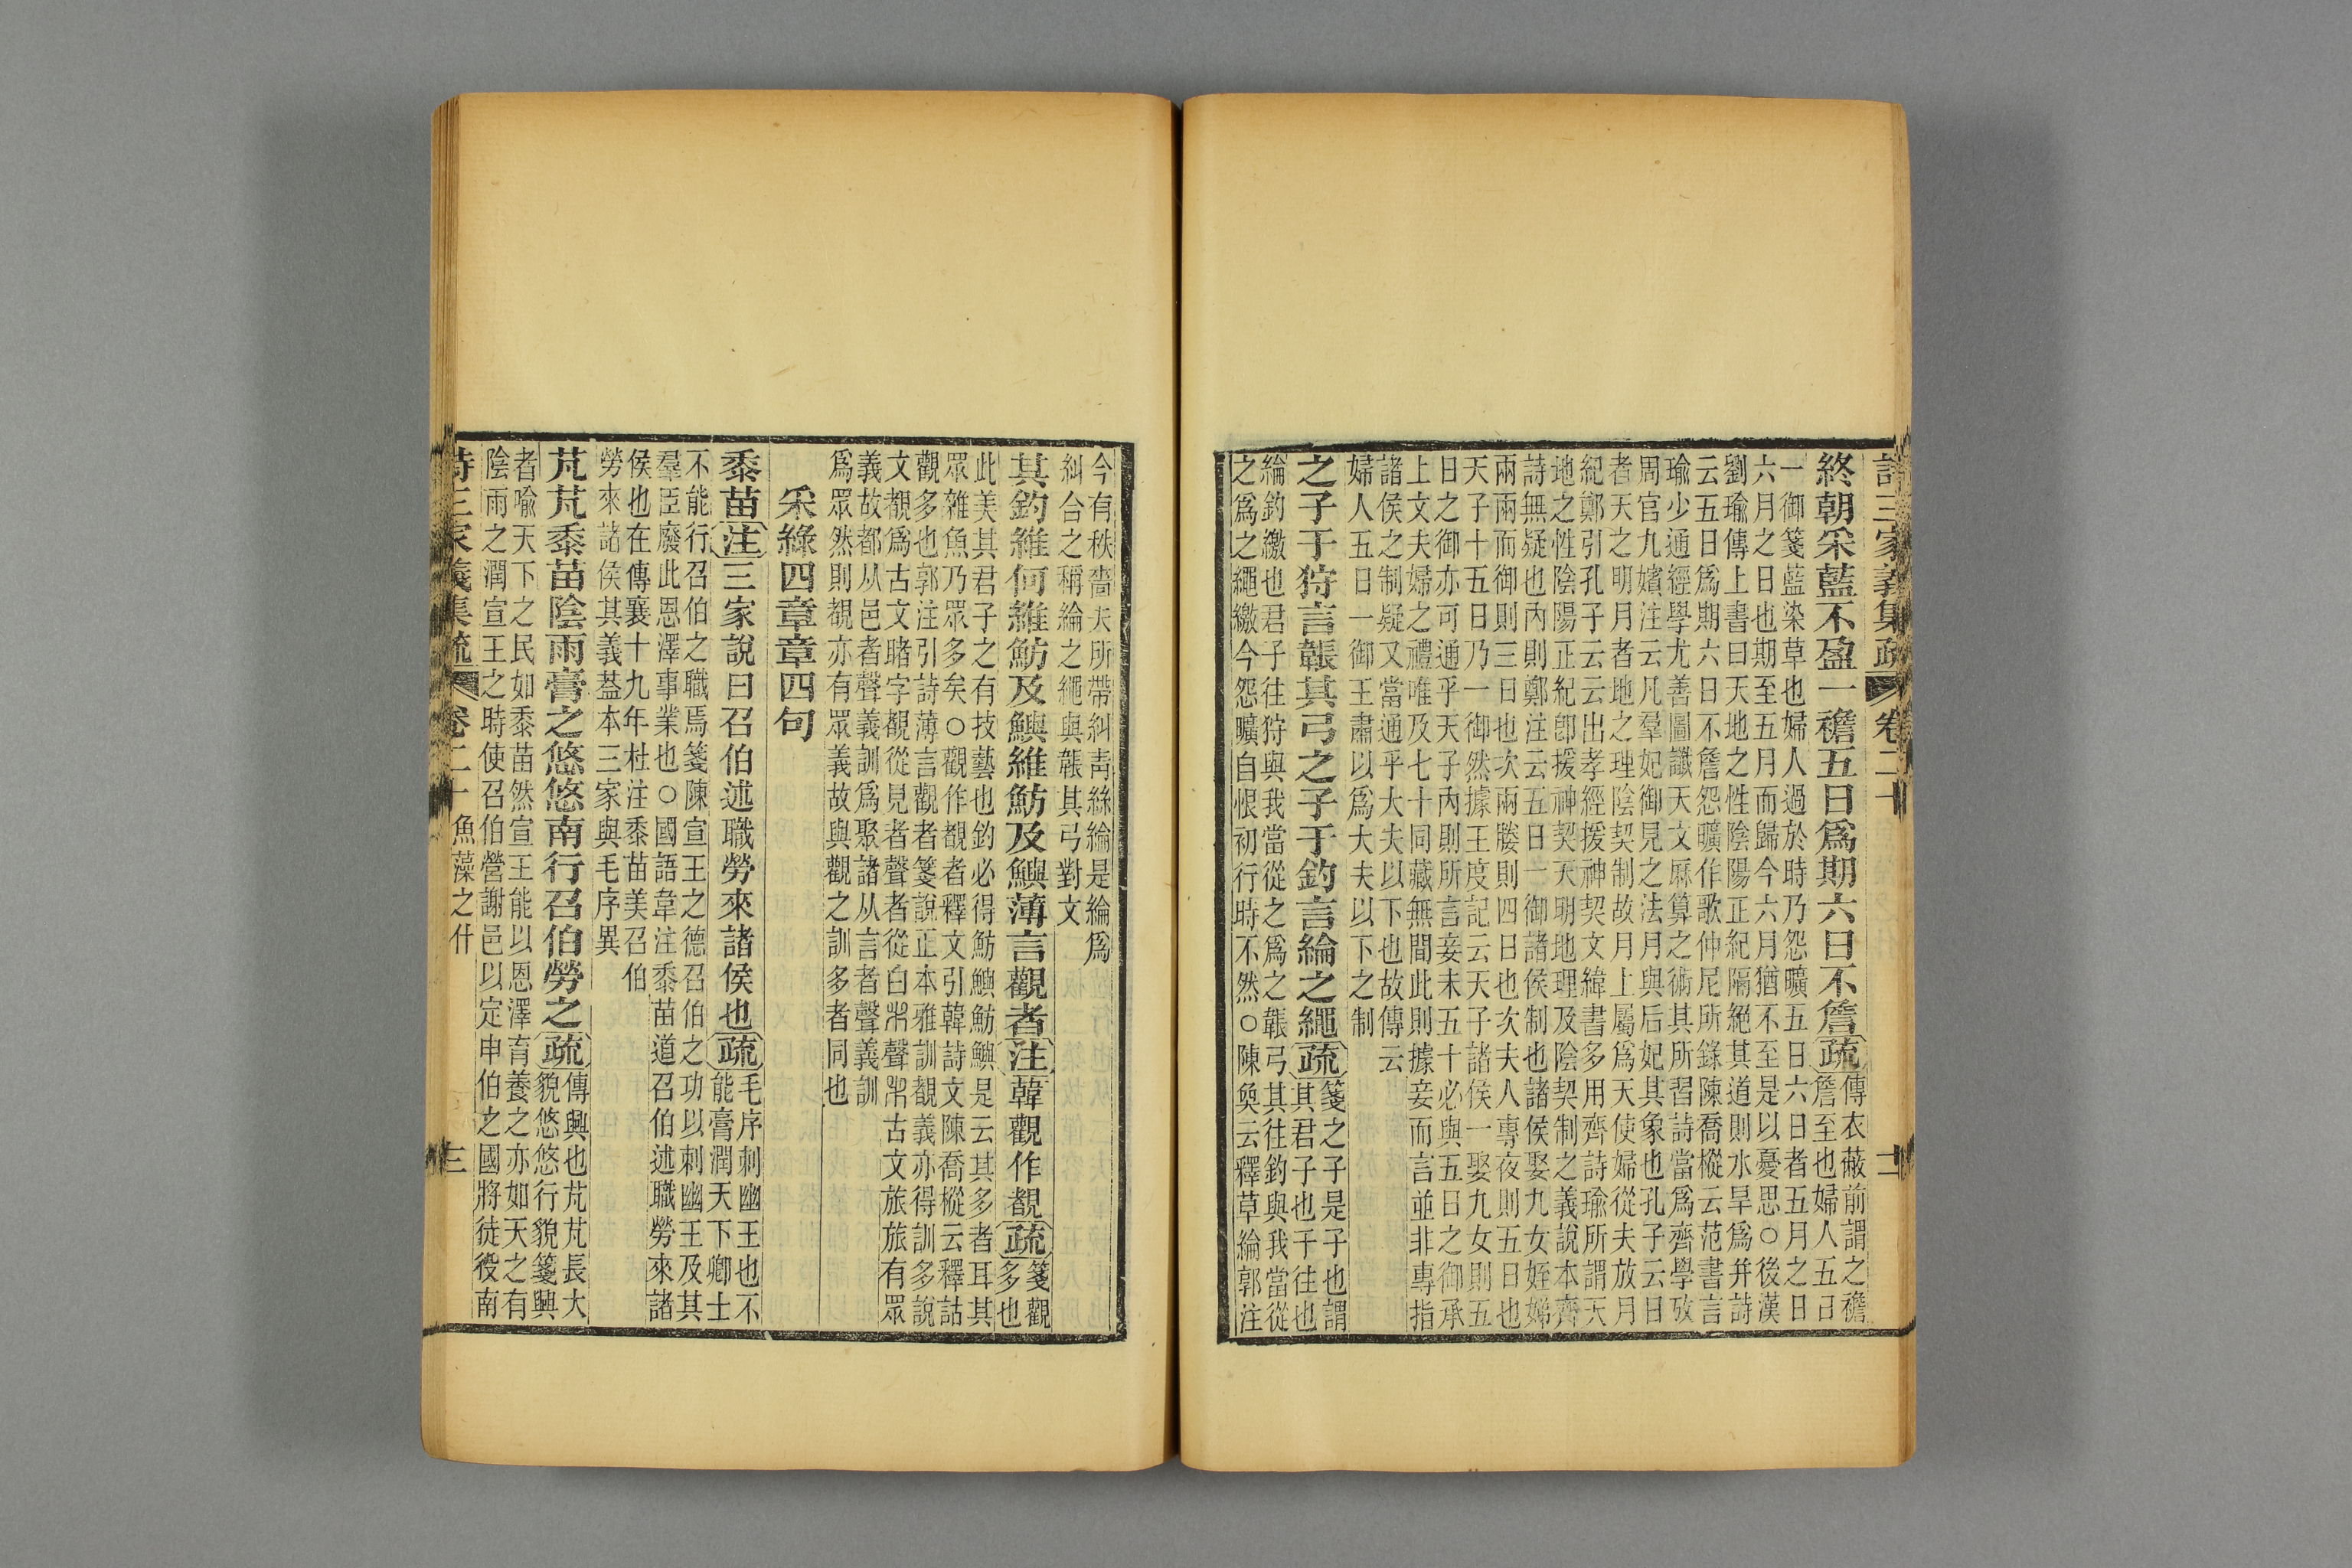 詩三家義集疏 卷二十 十二
終朝采藍不盈一襜五日爲期六日不詹疏
傳衣蔽前謂之襜
詹至也婦人五日
一御箋藍染草也婦人過於時乃怨曠五日六日者五月之日
六月之日也期至五月而歸今六月猶不至是以憂思○後漢
劉瑜傳上書曰天地之性陰陽正紀隔絕其道則水旱爲并詩
云五日爲期六日不詹怨曠作歌仲尼所錄陳喬樅云范書言
瑜少通經學尤善圖讖天文厤算之術其所習詩當爲齊學攷
周官九嬪注云凡羣妃御見之法月與后妃其象也孔子云日
者天之明月者地之理陰契制故月上屬爲天使婦從夫放月
紀鄭引孔子云云出孝經援神契文緯書多用齊詩瑜所謂天
地之性陰陽正紀卽援神契天明地理及陰契制之義說本齊
詩無疑也內則鄭注云五日一御諸侯制也諸侯娶九女姪娣
兩兩而御則三日也次兩媵則四日也次夫人專夜則五日也
天子十五日乃一御然據王度記云天子諸侯一娶九女則五
日之御亦可通乎天子內則所言妾未五十必與五日之御承
上文夫婦之禮唯及七十同藏無間此則據妾而言並非專指
諸侯之制疑又當通乎大夫以下也故傳云
婦人五日一御王肅以爲大夫以下之制
之子于狩言韔其弓之子于釣言綸之繩疏
箋之子是子也謂
其君子也于往也
綸釣繳也君子往狩與我當從之爲之韔弓其往釣與我當從
之爲之繩繳今怨曠自恨初行時不然○陳奐云釋草綸郭注
今有秩嗇夫所帶糾青絲綸是綸爲
糾合之稱綸之繩與韔其弓對文
其釣維何維魴及鱮維魴及鱮薄言觀者注韓觀作覩疏
箋觀
多也
此美其君子之有技藝也釣必得魴鱮魴鱮是云其多者耳其
眾雜魚乃眾多矣○觀作覩者釋文引韓詩文陳喬樅云釋詁
觀多也郭注引詩薄言觀者箋說正本雅訓覩義亦得訓多說
文覩爲古文睹字覩從見者聲者從白𣥐聲𣥐古文旅旅有眾
義故都从邑者聲義訓爲聚諸从言者聲義訓
爲眾然則覩亦有眾義故與觀之訓多者同也
采綠四章章四句
黍苗注三家說曰召伯述職勞來諸侯也疏
毛序刺幽王也不
能膏潤天下卿士
不能行召伯之職焉箋陳宣王之德召伯之功以刺幽王及其
羣臣廢此恩澤事業也○國語韋注黍苗道召伯述職勞來諸
侯也在傳襄十九年杜注黍苗美召伯
勞來諸侯其義葢本三家與毛序異
芃芃黍苗陰雨膏之悠悠南行召伯勞之疏
傳興也芃芃長大
貌悠悠行貌箋興
者喻天下之民如黍苗然宣王能以恩澤育養之亦如天之有
陰雨之潤宣王之時使召伯營謝邑以定申伯之國將徒役南
詩三家義集疏 卷二十 魚藻之什 三